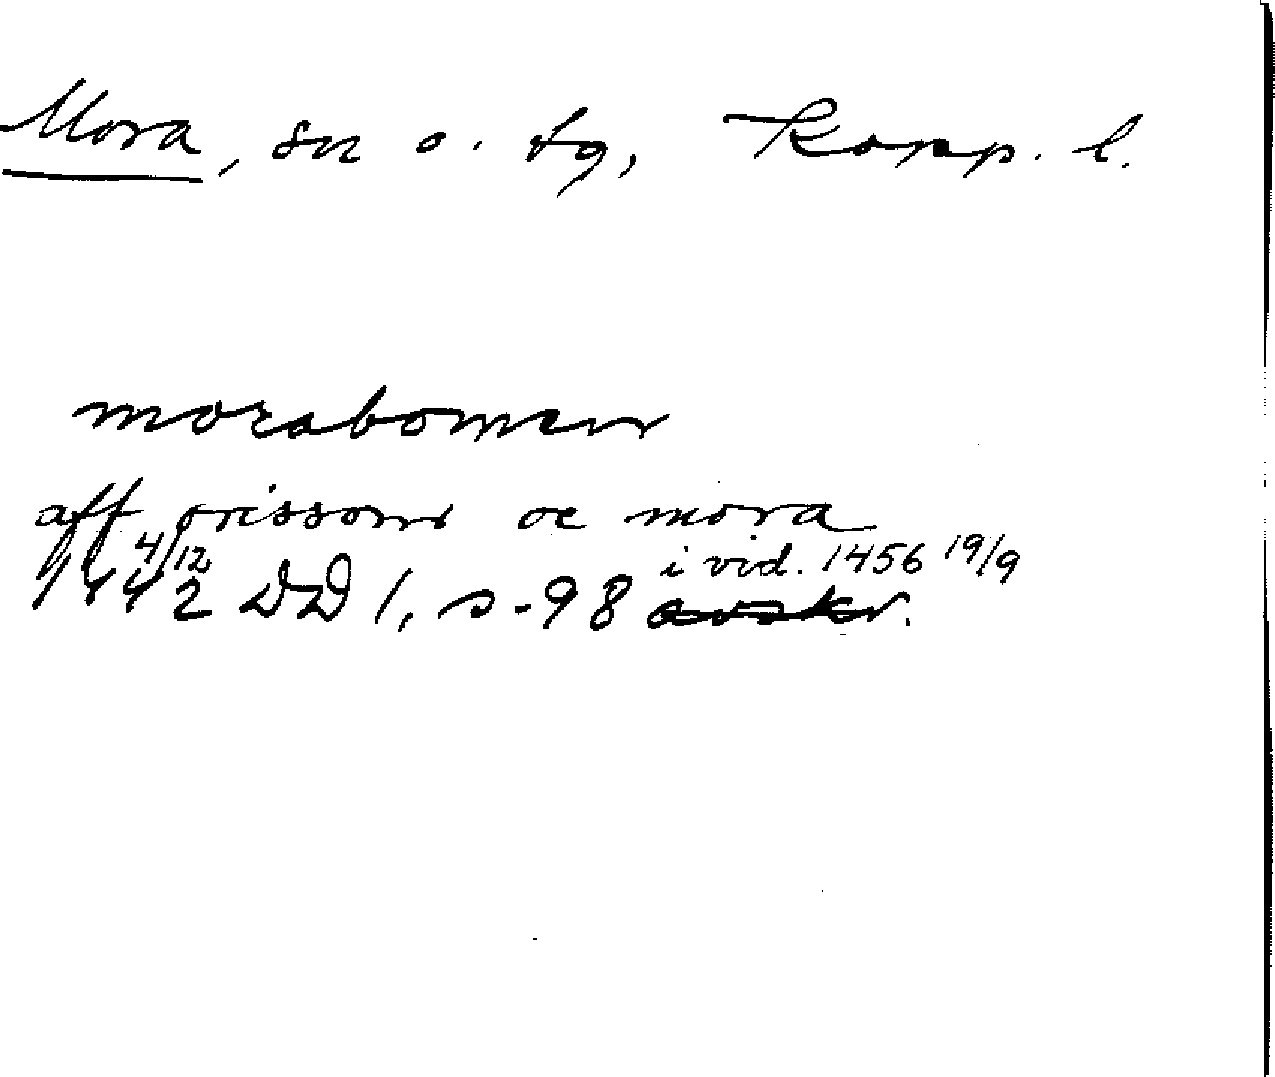 Mora, sn o. tg, Kopp. l.
moraboman
aff orissom oc mora
1442 4/12 DD 1, s. 98 i vid. 1456 19/9 avskr.